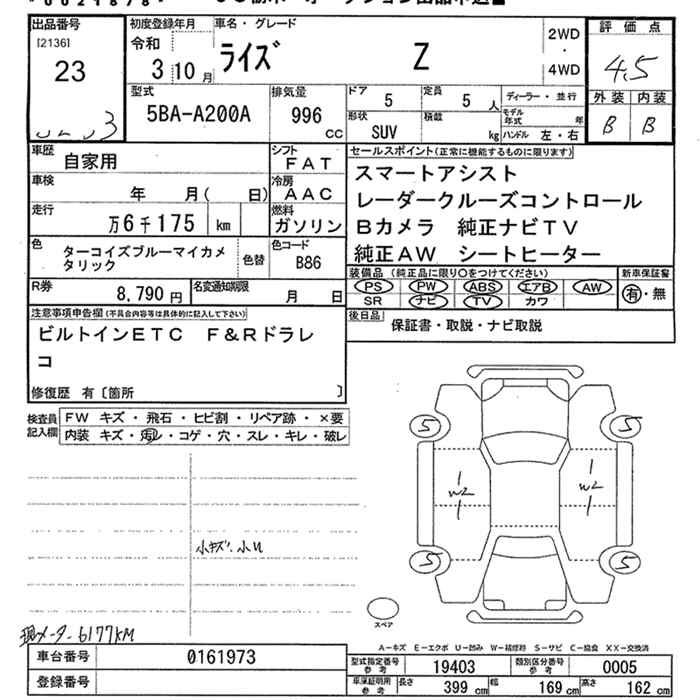 出品番号 初度登録年月 車名・グレード 評価点
[2136] 令和 2WD
23 3年10月 ライズ Z ・ 4.5
4WD
型式 排気量 ドア 定員 ディーラー・並行 外装 内装
5BA-A200A 996 cc 5 5人 モデル年式 年 B B
形状 積載 ハンドル 左・右
SUV kg
車歴 自家用 シフト FAT セールスポイント(正常に機能するものに限ります)
車検 年 月( 日) 冷房 AAC スマートアシスト
レーダークルーズコントロール
走行 万6千175 km 燃料 ガソリン Bカメラ 純正ナビTV
純正AW シートヒーター
色 ターコイズブルーマイカメタリック 色替 色コード B86
装備品(純正品に限り○をつけてください) 新車保証書
PS PW ABS エアB AW 有・無
SR ナビ TV カワ
R券 8,790円 名変通知期限 月 日
後日品 保証書・取説・ナビ取説
注意事項申告欄(不具合内容等は具体的に記入して下さい)
ビルトインETC F&Rドラレ
コ
修復歴 有〔箇所 〕
検査員記入欄 FW キズ・飛石・ヒビ割・リペア跡・×要
内装 キズ・汚レ・コゲ・穴・スレ・キレ・破レ
5 5
1 W2 1
1 W2 1
小キズ.小U
5 5
スペア
現メーター6177KM
A-キズ E-エクボ U-凹み W-補修跡 S-サビ C-腐食 XX-交換済
車台番号 0161973 型式指定番号参考 19403 類別区分番号参考 0005
登録番号 車庫証明用参考 長さ 399cm 幅 169cm 高さ 162cm